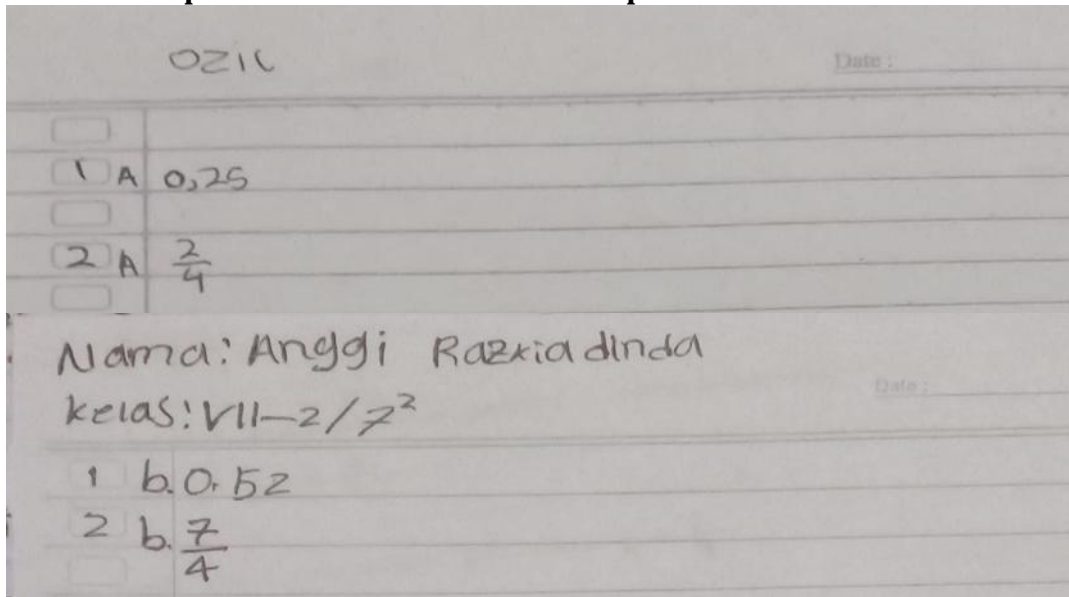 OZIL
Date :
1 A 0,25
2 A 2/4
Nama: Anggi Razkia dinda
Date :
kelas: VII-2/7²
1 b. 0.52
2 b. 7/4